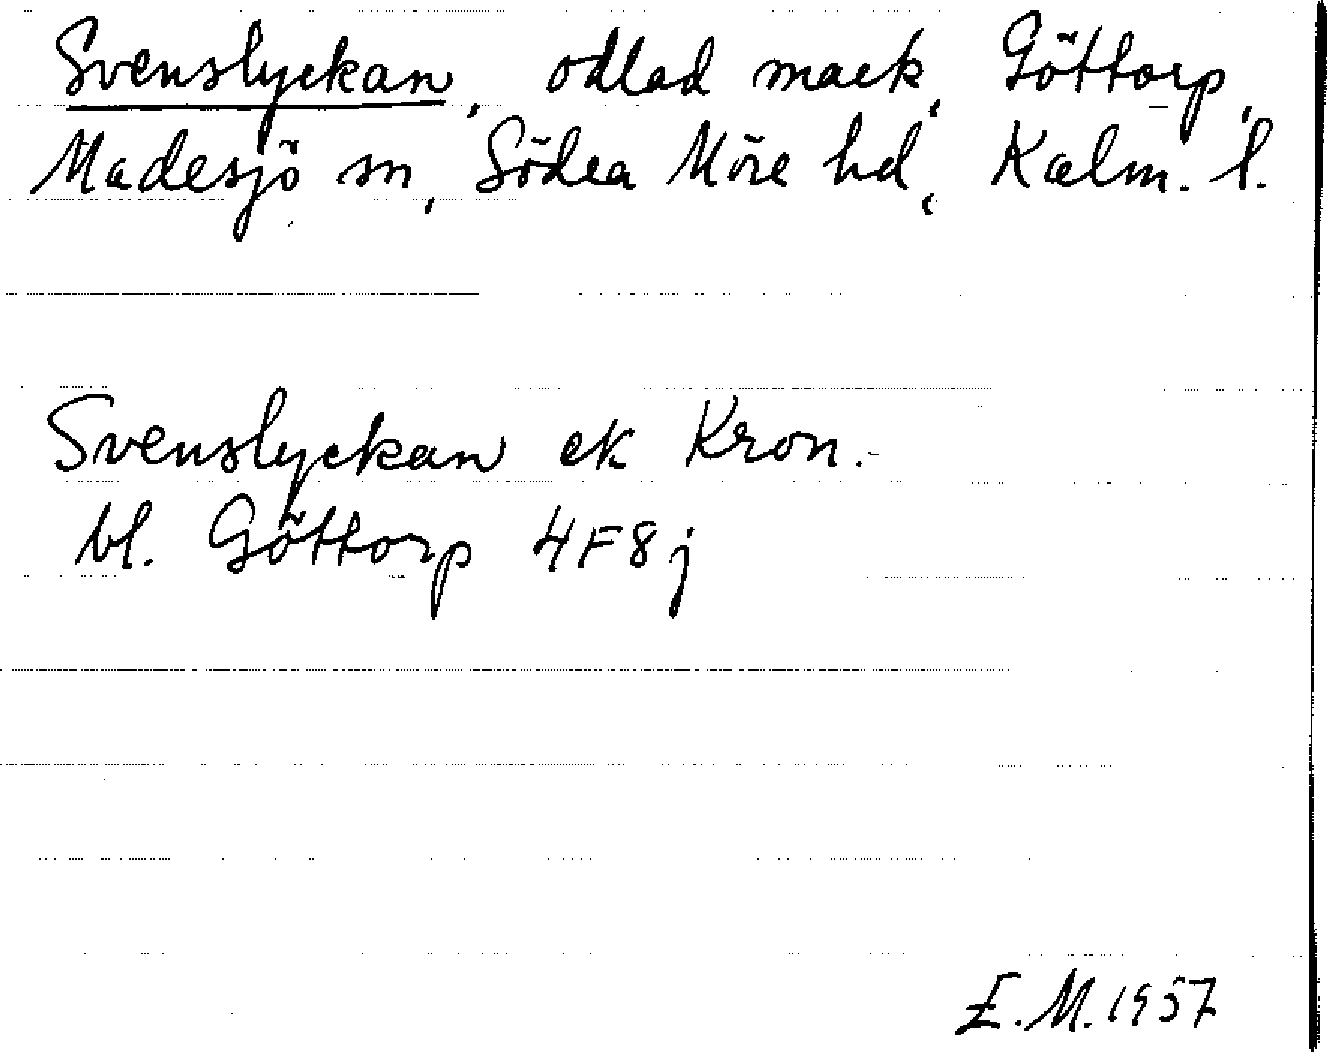 Svenslyckan, odlad mark, Göttorp,
Madesjö sn, Södra Möre hd, Kalm. l.
Svenslyckan ek Kron.
bl. Göttorp 4F8j
E.M. 1957